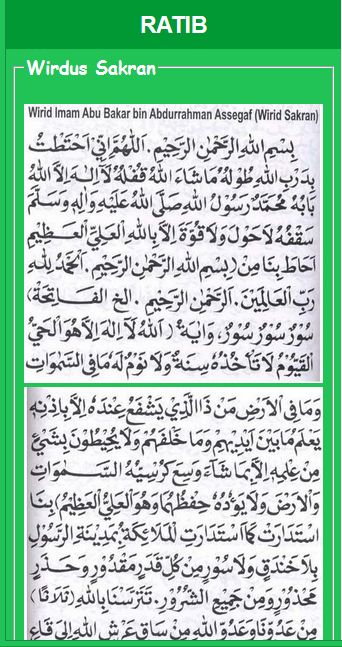 RATIB
Wirdus Sakran
Wirid Imam Abu Bakar bin Abdurrahman Assegaf (Wirid Sakran)
بِسْمِ اللهِ الرَّحْمٰنِ الرَّحِيْمِ. اَللّٰهُمَّ اِنِّيْ اِحْتَطْتُ
بِدَرْبِ اللهِ طُوْلُهُ مَاشَاءَ اللهُ قُفْلُهُ لَآ اِلٰهَ اِلَّا اللهُ
بَابُهُ مُحَمَّدٌ رَسُوْلُ اللهِ صَلَّى اللهُ عَلَيْهِ وَاٰلِهِ وَسَلَّمَ
سَقْفُهُ لَاحَوْلَ وَلَا قُوَّةَ اِلَّا بِاللهِ الْعَلِيِّ الْعَظِيْمِ
اَحَاطَ بِنَا مِنْ (بِسْمِ اللهِ الرَّحْمٰنِ الرَّحِيْمِ. اَلْحَمْدُ لِلّٰهِ
رَبِّ الْعَالَمِيْنَ. اَلرَّحْمٰنِ الرَّحِيْمِ. الخ الفَاتِحَة)
سُوْرٌ سُوْرٌ سُوْرٌ، وَاٰيَةُ (اَللهُ لَا اِلٰهَ اِلَّا هُوَ الْحَيُّ
الْقَيُّوْمُ لَا تَأْخُذُهُ سِنَةٌ وَلَا نَوْمٌ لَهُ مَا فِى السَّمٰوَاتِ
وَمَا فِى الْاَرْضِ مَنْ ذَا الَّذِيْ يَشْفَعُ عِنْدَهُ اِلَّا بِاِذْنِهِ
يَعْلَمُ مَابَيْنَ اَيْدِيْهِمْ وَمَا خَلْفَهُمْ وَلَا يُحِيْطُوْنَ بِشَيْءٍ
مِنْ عِلْمِهِ اِلَّا بِمَا شَاءَ وَسِعَ كُرْسِيُّهُ السَّمٰوَاتِ
وَالْاَرْضَ وَلَا يَؤُدُهُ حِفْظُهُمَا وَهُوَ الْعَلِيُّ الْعَظِيْمُ) بِنَا
اسْتَدَارَتْ كَمَا اسْتَدَارَتِ الْمَلَائِكَةُ بِمَدِيْنَةِ الرَّسُوْلِ
بِلَا خَنْدَقٍ وَلَا سُوْرٍ مِنْ كُلِّ قَدَرٍ مَقْدُوْرٍ وَحَذَرٍ
مَحْذُوْرٍ وَمِنْ جَمِيْعِ الشُّرُوْرِ. تَتَرَّسْنَا بِاللهِ (ثَلَاثًا)
مِنْ عَدُوِّنَا وَعَدُوِّ اللهِ مِنْ سَاقِ عَرْشِ اللهِ اِلَى قَاعِ